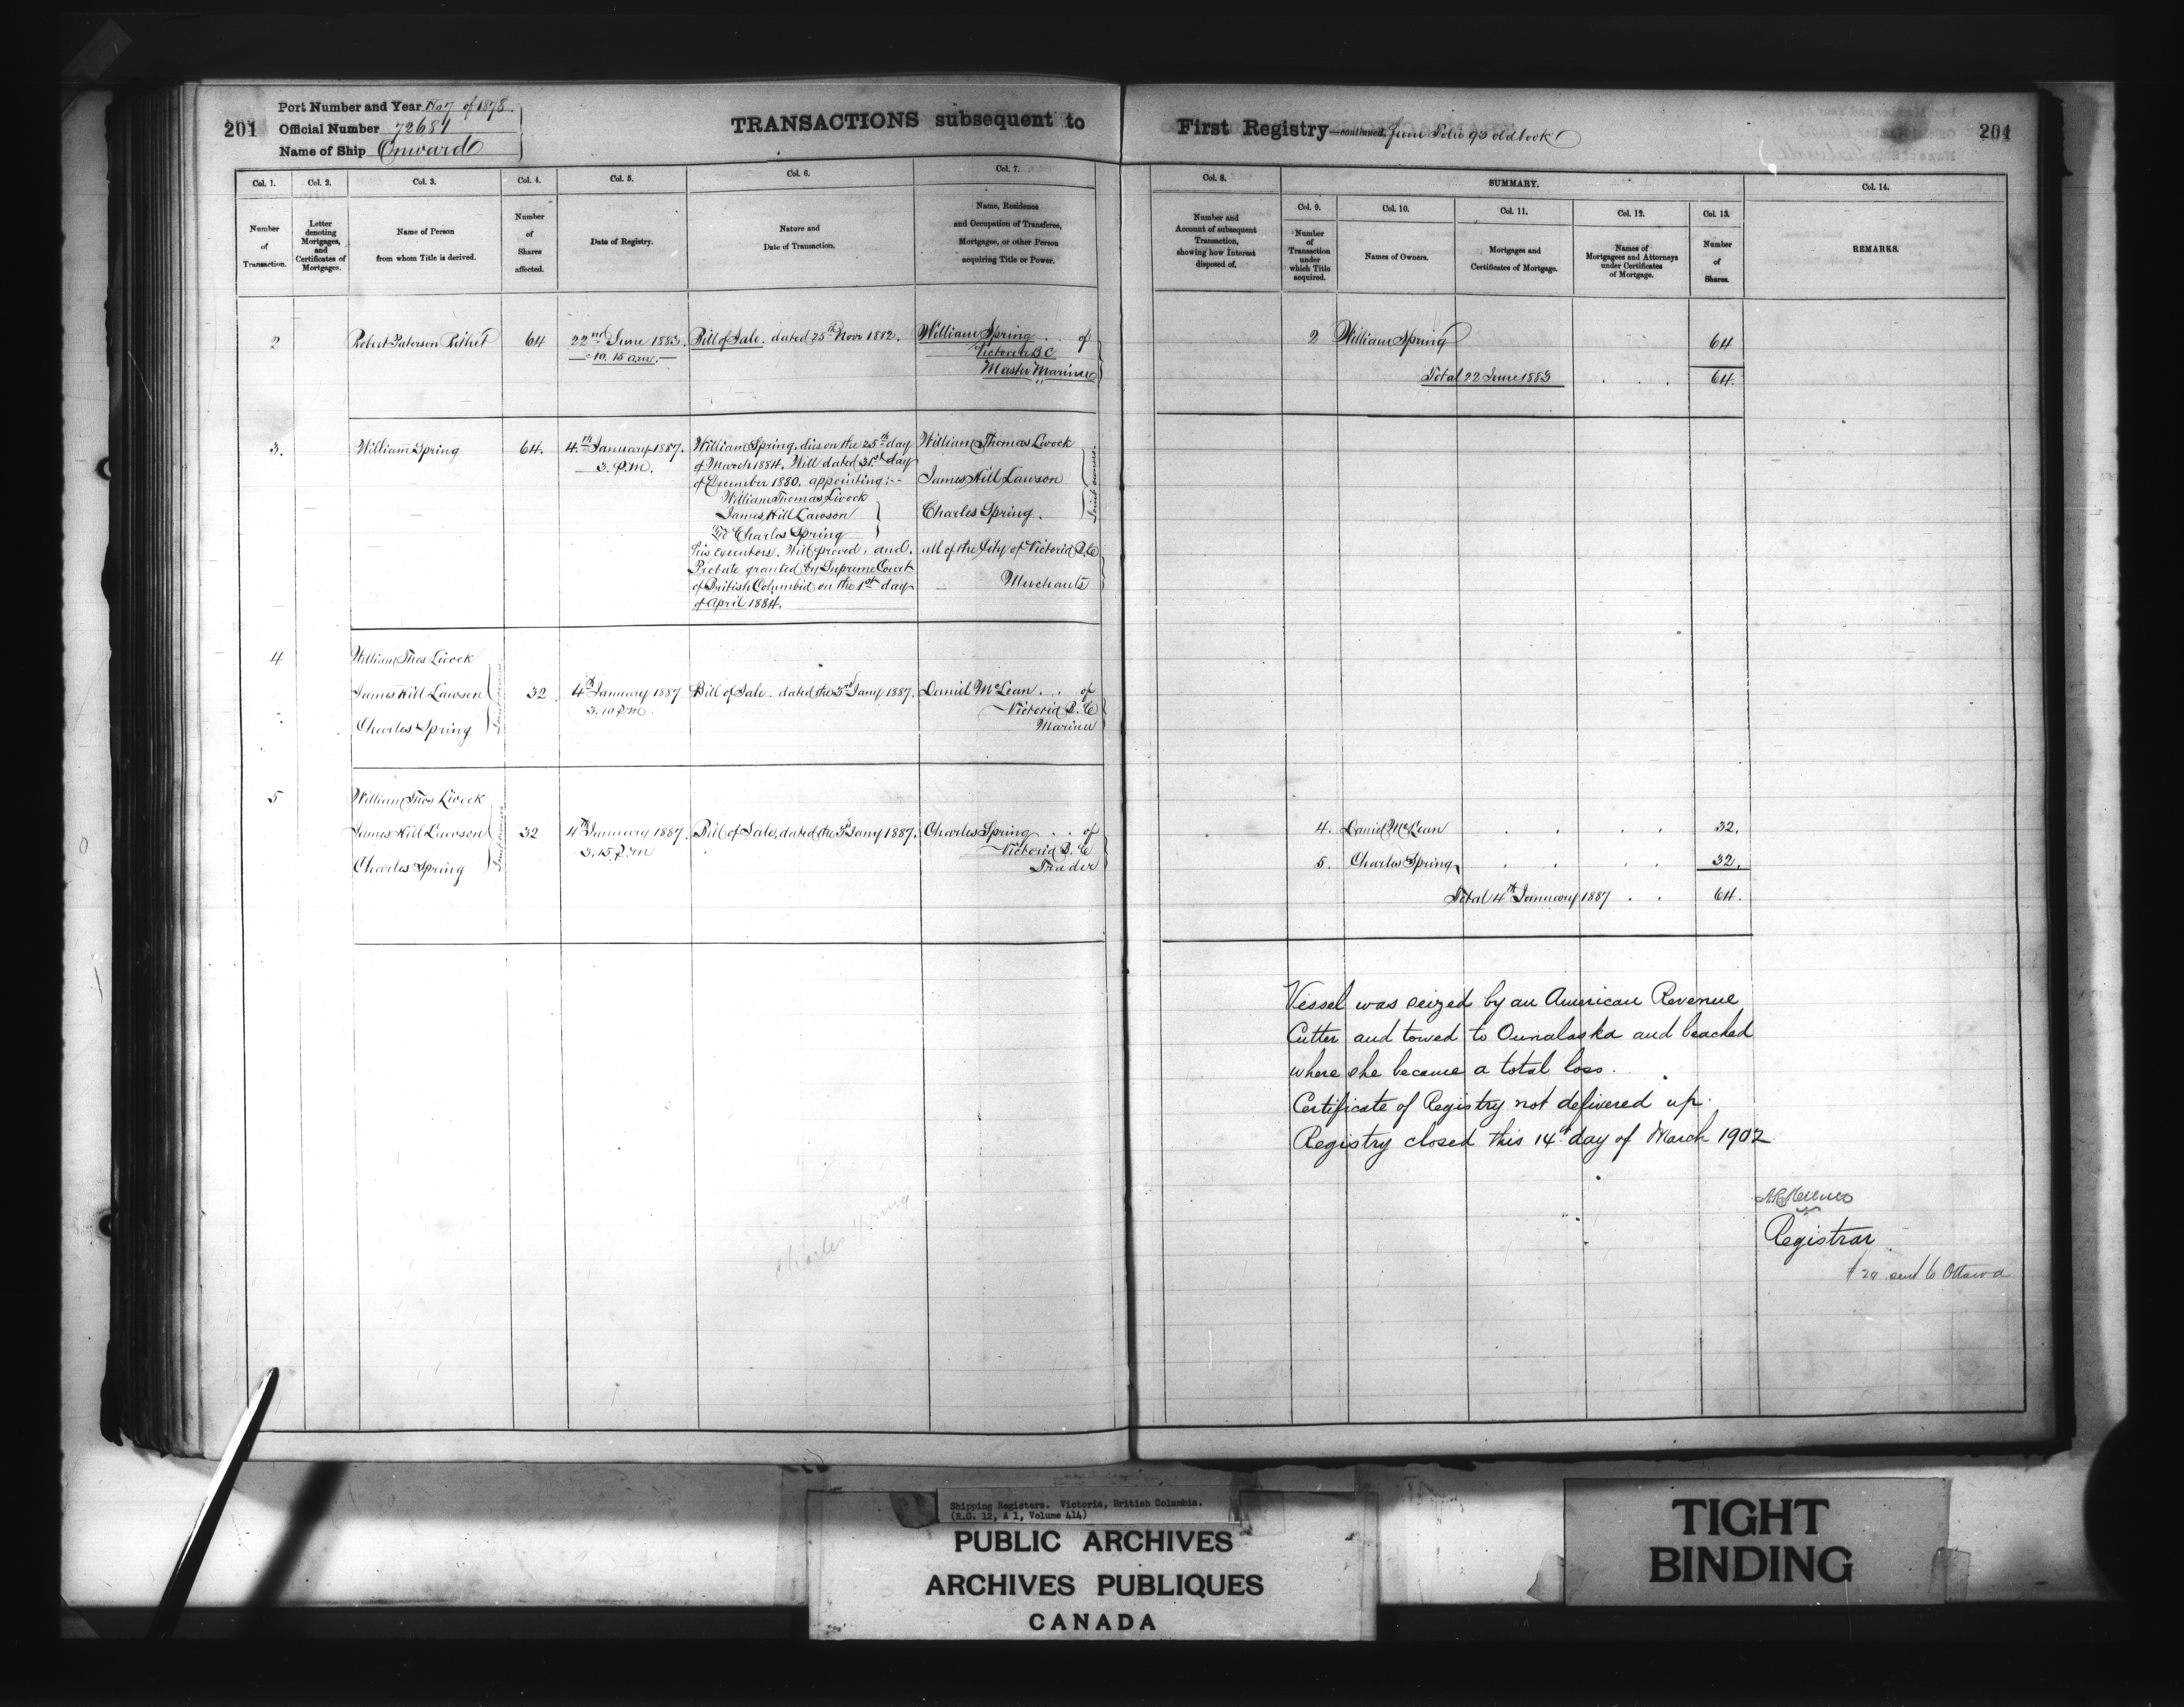 201
Port Number and Year No 7 of 1878.
Official Number 72684
Name of Ship Onward
TRANSACTIONS subsequent to
First Registry—continued, from Folio 93 old book
201
Col. 1.
Number
of
Transaction.
Col. 2.
Letter
denoting
Mortgages,
and
Certificates of
Mortgages.
Col. 3.
Name of Person
from whom Title is derived.
Col. 4.
Number
of
Shares
affected.
Col. 5.
Date of Registry.
Col. 6.
Nature and
Date of Transaction.
Col. 7.
Name, Residence
and Occupation of Transferee,
Mortgagee, or other Person
acquiring Title or Power.
Col. 8.
Number and
Account of subsequent
Transaction,
showing how Interest
disposed of.
SUMMARY.
Col. 9.
Number
of
Transaction
under
which Title
acquired.
Col. 10.
Names of Owners.
Col. 11.
Mortgages and
Certificates of Mortgage.
Col. 12.
Names of
Mortgagees and Attorneys
under Certificates
of Mortgage.
Col. 13.
Number
of
Shares.
Col. 14.
REMARKS.
2
Robert Paterson Rithet
64
22nd June 1883.
10.15 a.m.
Bill of Sale. dated 25th Novr 1882.
William Spring . . of
Victoria B C
Master Mariner
2 William Spring 64
Total 22 June 1883 . . . 64.
3.
William Spring
64.
4th January 1887.
3. P.M.
William Spring, dies on the 25th day
of March 1884. Will dated 31st day
of December 1880. appointing :--
William Thomas Livock
James Hill Lawson
and Charles Spring
his executors. Will proved, and
Probate granted by Supreme Court
of British Columbia on the 1st day
of April 1884.
William Thomas Livock
James Hill Lawson
Charles Spring.
Joint owners.
all of the City of Victoria B.C
Merchants
4
William Thos Livock
James Hill Lawson
Charles Spring
Joint owners
32
4th January 1887
3.10 P.M.
Bill of Sale. dated the 3rd Jany 1887.
Daniel McLean . . of
Victoria B. C
Mariner
5
William Thos Livock
James Hill Lawson
Charles Spring
Joint owners
32
4th January 1887.
3.15 P.M
Bill of Sale, dated the 3d Jany 1887.
Charles Spring . . of
Victoria B. C
Trader
4. Daniel McLean . . . . 32.
5. Charles Spring . . . . 32.
Total 4th January 1887 . . 64.
Vessel was seized by an American Revenue
Cutter and towed to Ounalaska and beached
where she became a total loss.
Certificate of Registry not delivered up.
Registry closed this 14th day of March 1902
Registrar
sent to Ottawa
Charles Spring
Shipping Registers. Victoria, British Columbia.
(R.G. 12, A 1, Volume 414)
PUBLIC ARCHIVES
ARCHIVES PUBLIQUES
CANADA
TIGHT
BINDING